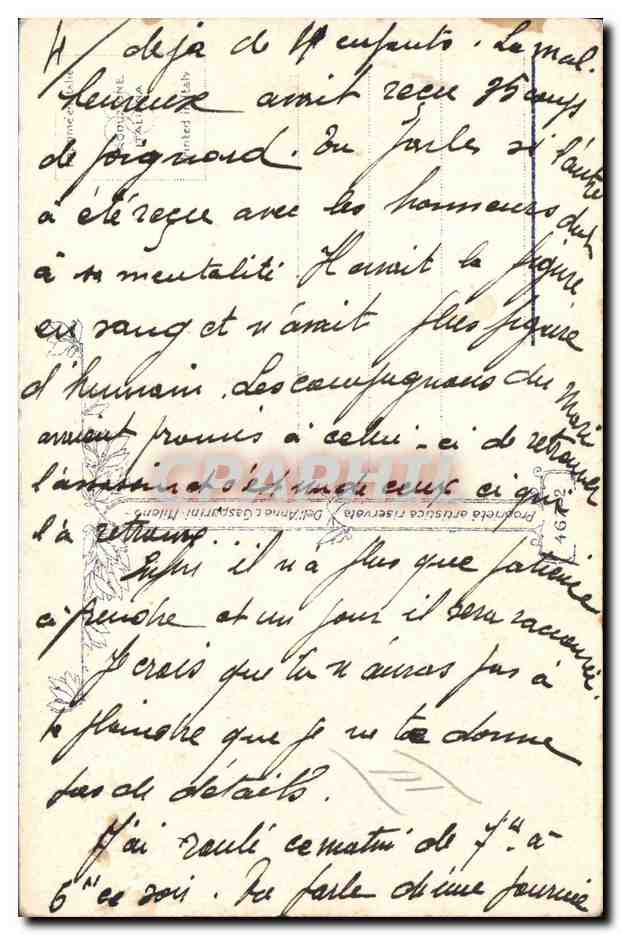 4/ déjà de 4 enfants. Le mal-
heureux avait reçu 35 coups
de poignard. Tu parles si l'autre
à été reçu avec les honneurs dus
à sa mentalité. Il avait la figure
en sang et n'avait plus figure
d'humain. Les compagnons du Mari
avaient promis à celui-ci de retrouver
l'assassin et c'est un de ceux ci qui
l'à retrouvé.
Enfin il n'a plus que patience
à prendre et un jour il sera raccourci.
Je crois que tu n'auras pas à
te plaindre que je ne te donne
pas de détails.
J'ai roulé ce matin de 7h à
6h ce soir. Tu parle d'une journée
ITALIANA
Printed in Italy
Dell'Anna & Gasparini - Milano
Proprietà artistica riservata
4612
CPAPHIL